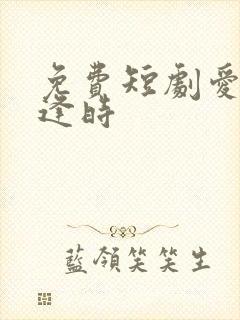 免費短劇愛
逢時
藍領笑笑生